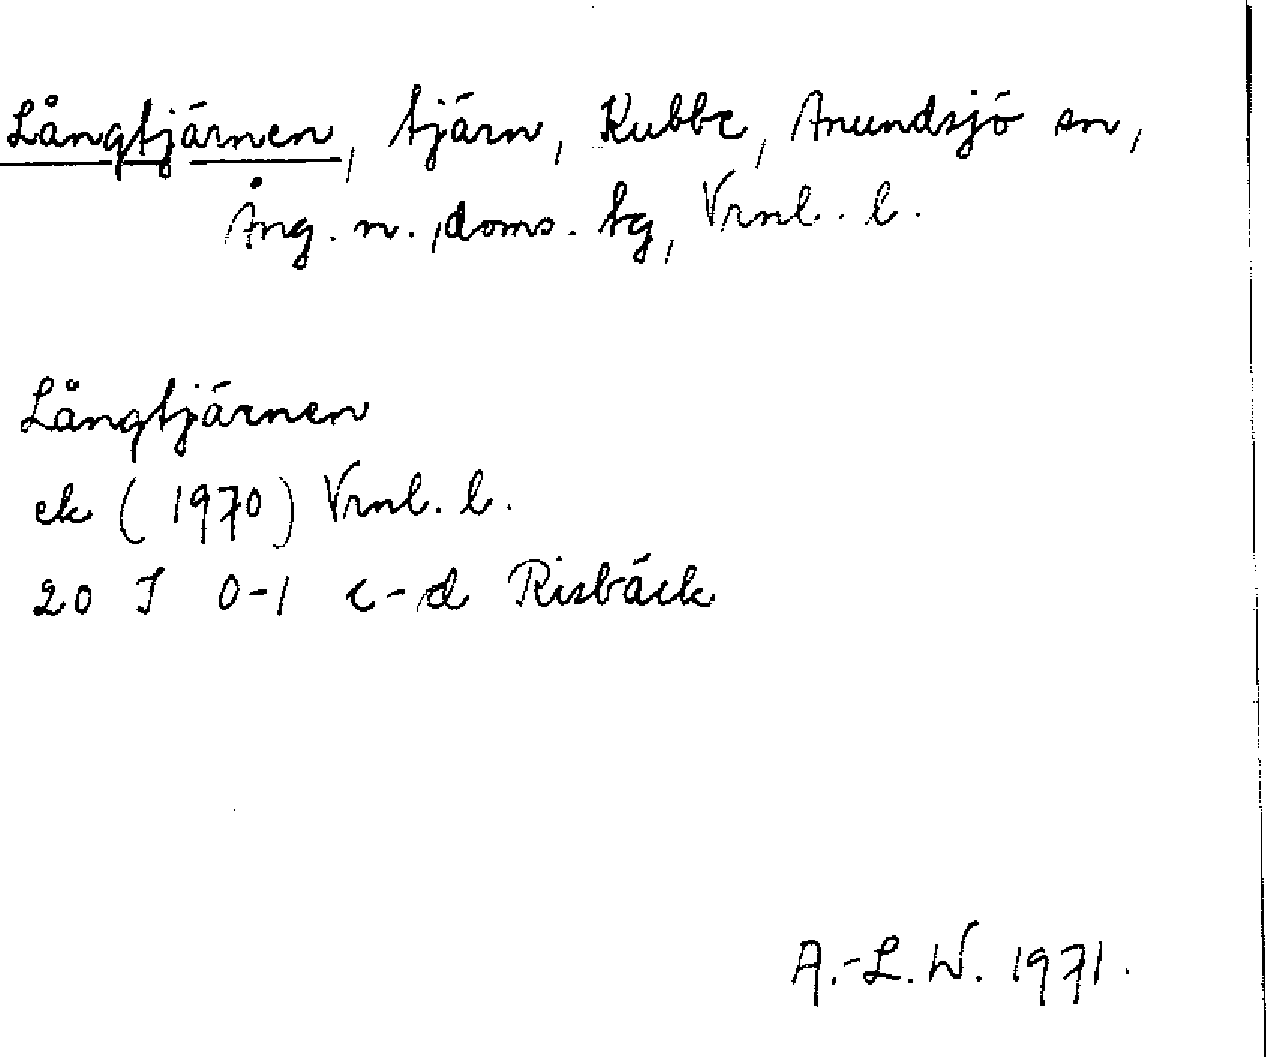 Långtjärnen, tjärn, Kubbe, Anundsjö sn,
Ång. n., doms. tg, Vrnl. l.
Långtjärnen
ek (1970) Vrnl. l.
20 I 0-1 c-d Risbäck
A.-L. W. 1971.